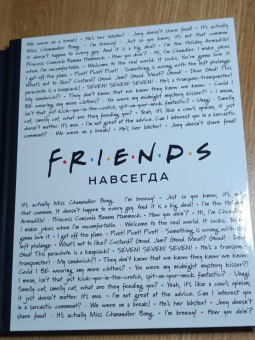 We were on a break! • He's her lobster! • Joey doesn't share food! • It's actually
Miss Chanandler Bong. • I'm breezy! • Just so you know, it's not that common.
It doesn't happen to every guy. And it is a big deal! • I'm the Holiday Armadillo!
Princess Consuela Banana Hammock • How you doin'? • Hi, I'm Chandler. I make jokes
when I'm uncomfortable. • Welcome to the real world. It sucks. You're gonna love it.
I got off the plane. • Pivot! Pivot! Pivot! • Something is wrong with the left phalange.
What's not to like? Custard? Good. Jam? Good. Meat? Good! • Dear God! This
parachute is a knapsack! • SEVEN! SEVEN! SEVEN! • He's a transponster!
My sandwich?! • They don't know that we know they know we know. • Could I
BE wearing any more clothes? • Yo
F•R•I•E•N•D•S
НАВСЕГДА
It's actually Miss Chanandler Bong. • I'm breezy! • Just so you know, it's not
that common. It doesn't happen to every guy. And it is a big deal! • I'm the Holiday
Armadillo! • Princess Consuela Banana Hammock • How you doin'? • Hi, I'm Chandler.
I make jokes when I'm uncomfortable. • Welcome to the real world. It sucks. You're gonna
love it. • I got off the plane. • Pivot! Pivot! Pivot! • Something is wrong with the left
phalange. • What's not to like? Custard? Good. Jam? Good. Meat? Good!
God! This parachute is a knapsack! • SEVEN! SEVEN! SEVEN!
transponster! • My sandwich?! • They don't know that we know they know we know.
Could I BE wearing any more clothes?
I mean, isn't that just kick-you-in-the-crotch, spit-on-your-neck fantastic? • Unagi.
Smelly cat, smelly cat, what are they feeding you? • Yeah, it's like a cow's opinion,
it just doesn't matter. It's moo. • I'm not great at the advice. Can I interest you in
a sarcastic comment? • We were on a break! • He's her lobster! • Joey doesn't share
food! • It's actually Miss Chanandler Bong. • I'm breezy! • How you doin'?